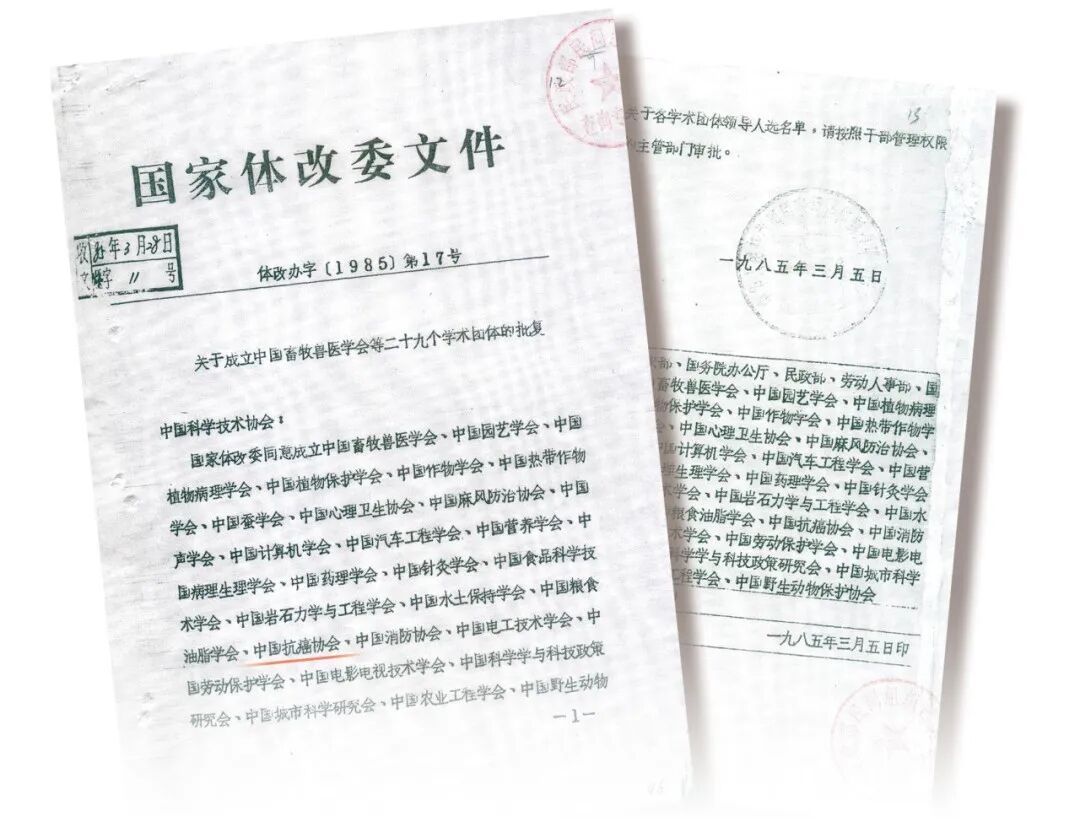 国家体改委文件
年3月28日
文 字 11 号
体改办字〔1985〕第17号
关于成立中国畜牧兽医学会等二十九个学术团体的批复
中国科学技术协会：
国家体改委同意成立中国畜牧兽医学会、中国园艺学会、中国
植物病理学会、中国植物保护学会、中国作物学会、中国热带作物
学会、中国蚕学会、中国心理卫生协会、中国麻风防治协会、中国
声学会、中国计算机学会、中国汽车工程学会、中国营养学会、中
国病理生理学会、中国药理学会、中国针灸学会、中国食品科学技
术学会、中国岩石力学与工程学会、中国水土保持学会、中国粮食
油脂学会、中国抗癌协会、中国消防协会、中国电工技术学会、中
国劳动保护学会、中国电影电视技术学会、中国科学学与科技政策
研究会、中国城市科学研究会、中国农业工程学会、中国野生动物
—1—
12
13
关于各学术团体领导人选名单，请按照干部管理权限
主管部门审批。
一九八五年三月五日
部、国务院办公厅、民政部、劳动人事部、国
畜牧兽医学会、中国园艺学会、中国植物病理
物保护学会、中国作物学会、中国热带作物学
会、中国心理卫生协会、中国麻风防治协会、
中国计算机学会、中国汽车工程学会、中国营
理生理学会、中国药理学会、中国针灸学会
术学会、中国岩石力学与工程学会、中国水
粮食油脂学会、中国抗癌协会、中国消防
术学会、中国劳动保护学会、中国电影电
科学学与科技政策研究会、中国城市科学
工程学会、中国野生动物保护协会
一九八五年三月五日印